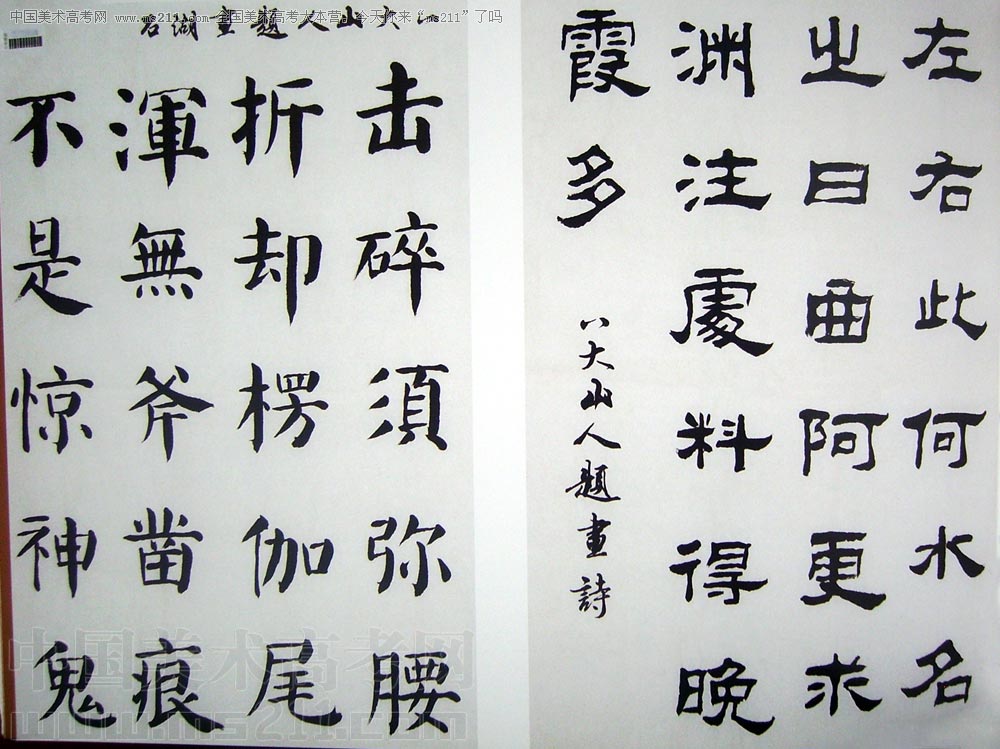 中国美术高考网 www.ms211.com 全国美术高考大本营，今天你来“ms211”了吗
左右此何水名
之曰曲阿更求
渊注處料得晚
霞多
八大山人題畫詩
大山人題畫湖石
击碎須弥腰
折却楞伽尾
渾無斧凿痕
不是惊神鬼
中国美术高考网
www.ms211.com